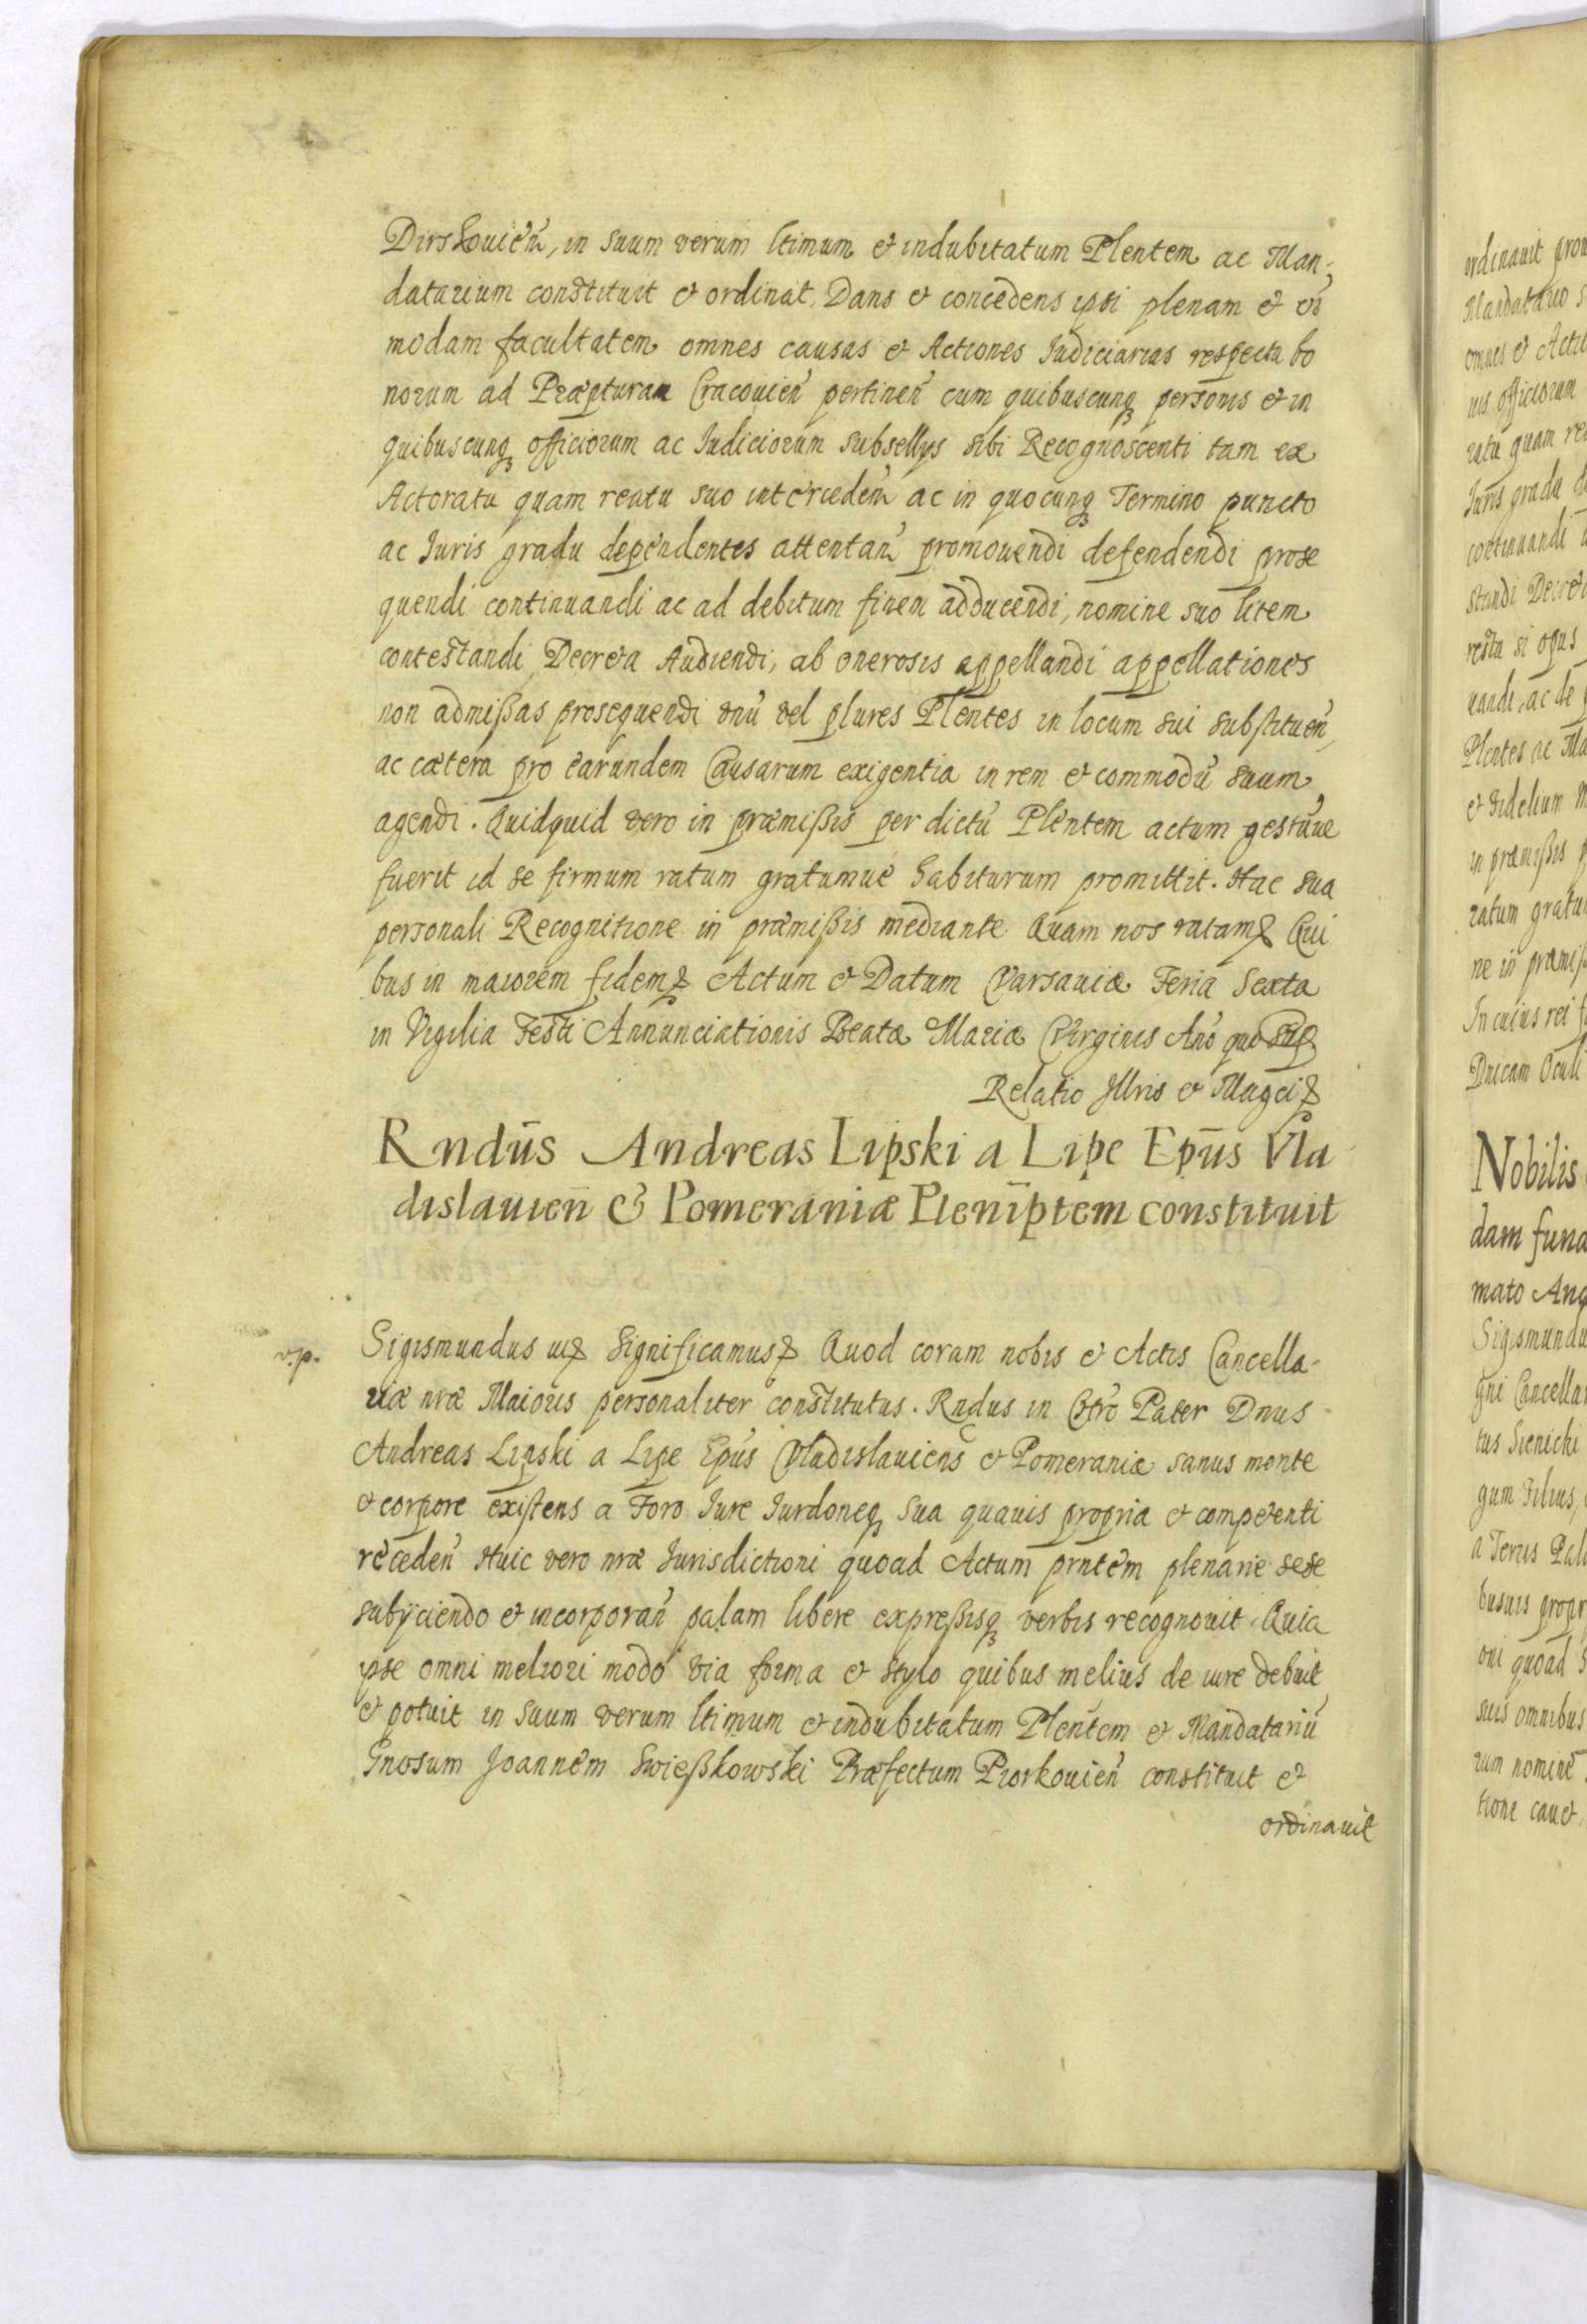 Dirshouień, in suum verum ltimum et indubitatum Plentem ac Man-
datarium constituit et ordinat. Dans et concedens ipsi plenam et oi
modam facultatem omnes causas et Actiones Iudiciarias respectu bo
norum ad Præpturam Cracouień pertineń cum quibuscunq personis et in
quibuscunq officiorum ac Iudiciorum subsellys sibi Recognoscenti tam ex
Actoratu quam reatu suo intercedeń ac in quocunq Termino puncto
ac Iuris gradu dependentes attentań promouendi defendendi prose
quendi continuandi ac ad debitum finem adducendi, nomine suo litem
contestandi Decreta Audiendi, ab onerosis appellandi appellationes
non admißas prosequendi vnú vel plures Plentes in locum sui substitueń,
ac cætera pro earundem Causarum exigentia in rem et commodú suum
agendi. Quidquid vero in præmißis per dictú Plentem actum gestúue
fuerit id se firmum ratum gratumue habiturum promittit. Hac sua
personali Recognitione in præmißis mediante Quam nos ratam& Qui
bus in maiorem fidem& Actum et Datum Varsauiæ Feria Sexta
in Vigilia Festi Annunciationis Beatæ Mariæ Virginis Ano quo sup
Relatio Illris et Magci&
Rndūs Andreas Lipski a Lipe Epūs Vla
dislauień & Pomeraniæ Plenīptem constituit
v.p.
Sigismundus III& Significamus& Quod coram nobis et Actis Cancella-
riæ nræ Maioris personaliter constitutus. Rndus in Chro Pater Dnus
Andreas Lipski a Lipe Epus Vladislauiens et Pomeraniæ sanus mente
et corpore existens a Foro Iure Iurdoneq sua quauis propria et competenti
recedeń Huic vero nræ Iurisdictioni quoad Actum prntem plenarie sese
subyciendo et incorporań palam libere expreßisq verbis recognouit. Quia
ipse omni meliori modo via forma et stylo quibus melius de iure debuit
et potuit in suum verum ltimum et indubitatum Plentem et Mandatariú
Gnosum Joannem Swießkowski Præfectum Piorkouień constituit et
ordinauit
ordinauit
omnes et
ratum
Nobilis
mato
gum Filius,
suis omnibus